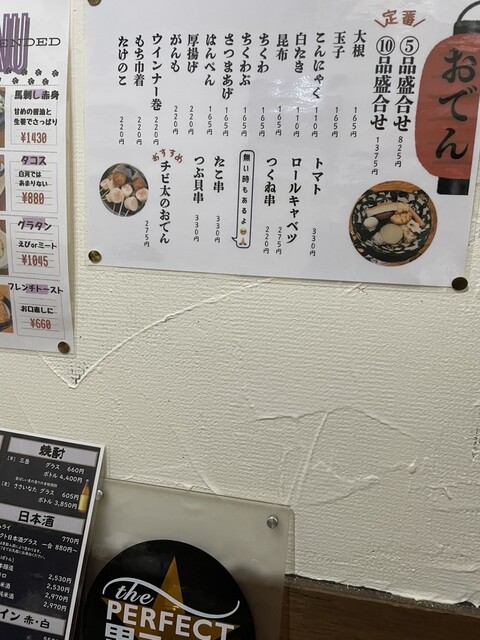 おでん
定番
⑤品盛合せ 825円
⑩品盛合せ 1375円
大根 165円
玉子 165円
こんにゃく 110円
白たき 110円
昆布 165円
ちくわ 165円
ちくわぶ 165円
さつまあげ 165円
はんぺん 165円
厚揚げ 220円
がんも 220円
ウインナー巻 220円
もち巾着 220円
たけのこ 220円
トマト 330円
ロールキャベツ 275円
つくね串 220円
無い時もあるよ
たこ串 330円
つぶ貝串 330円
おすすめ
チビ太のおでん 275円
ENDED
NU
馬刺し赤身
甘めの醤油と
生姜でさっぱり
¥1430
タコス
白河では
あまりない
¥880
グラタン
えびorミート
¥1045
フレンチトースト
お口直しに
¥660
焼酎
グラス 660円
ボトル 4,400円
グラス 605円
ボトル 3,850円
日本酒
770円
日本酒グラス 一合 880円～
2,530円
2,530円
2,970円
2,970円
イン 赤・白
the
PERFECT